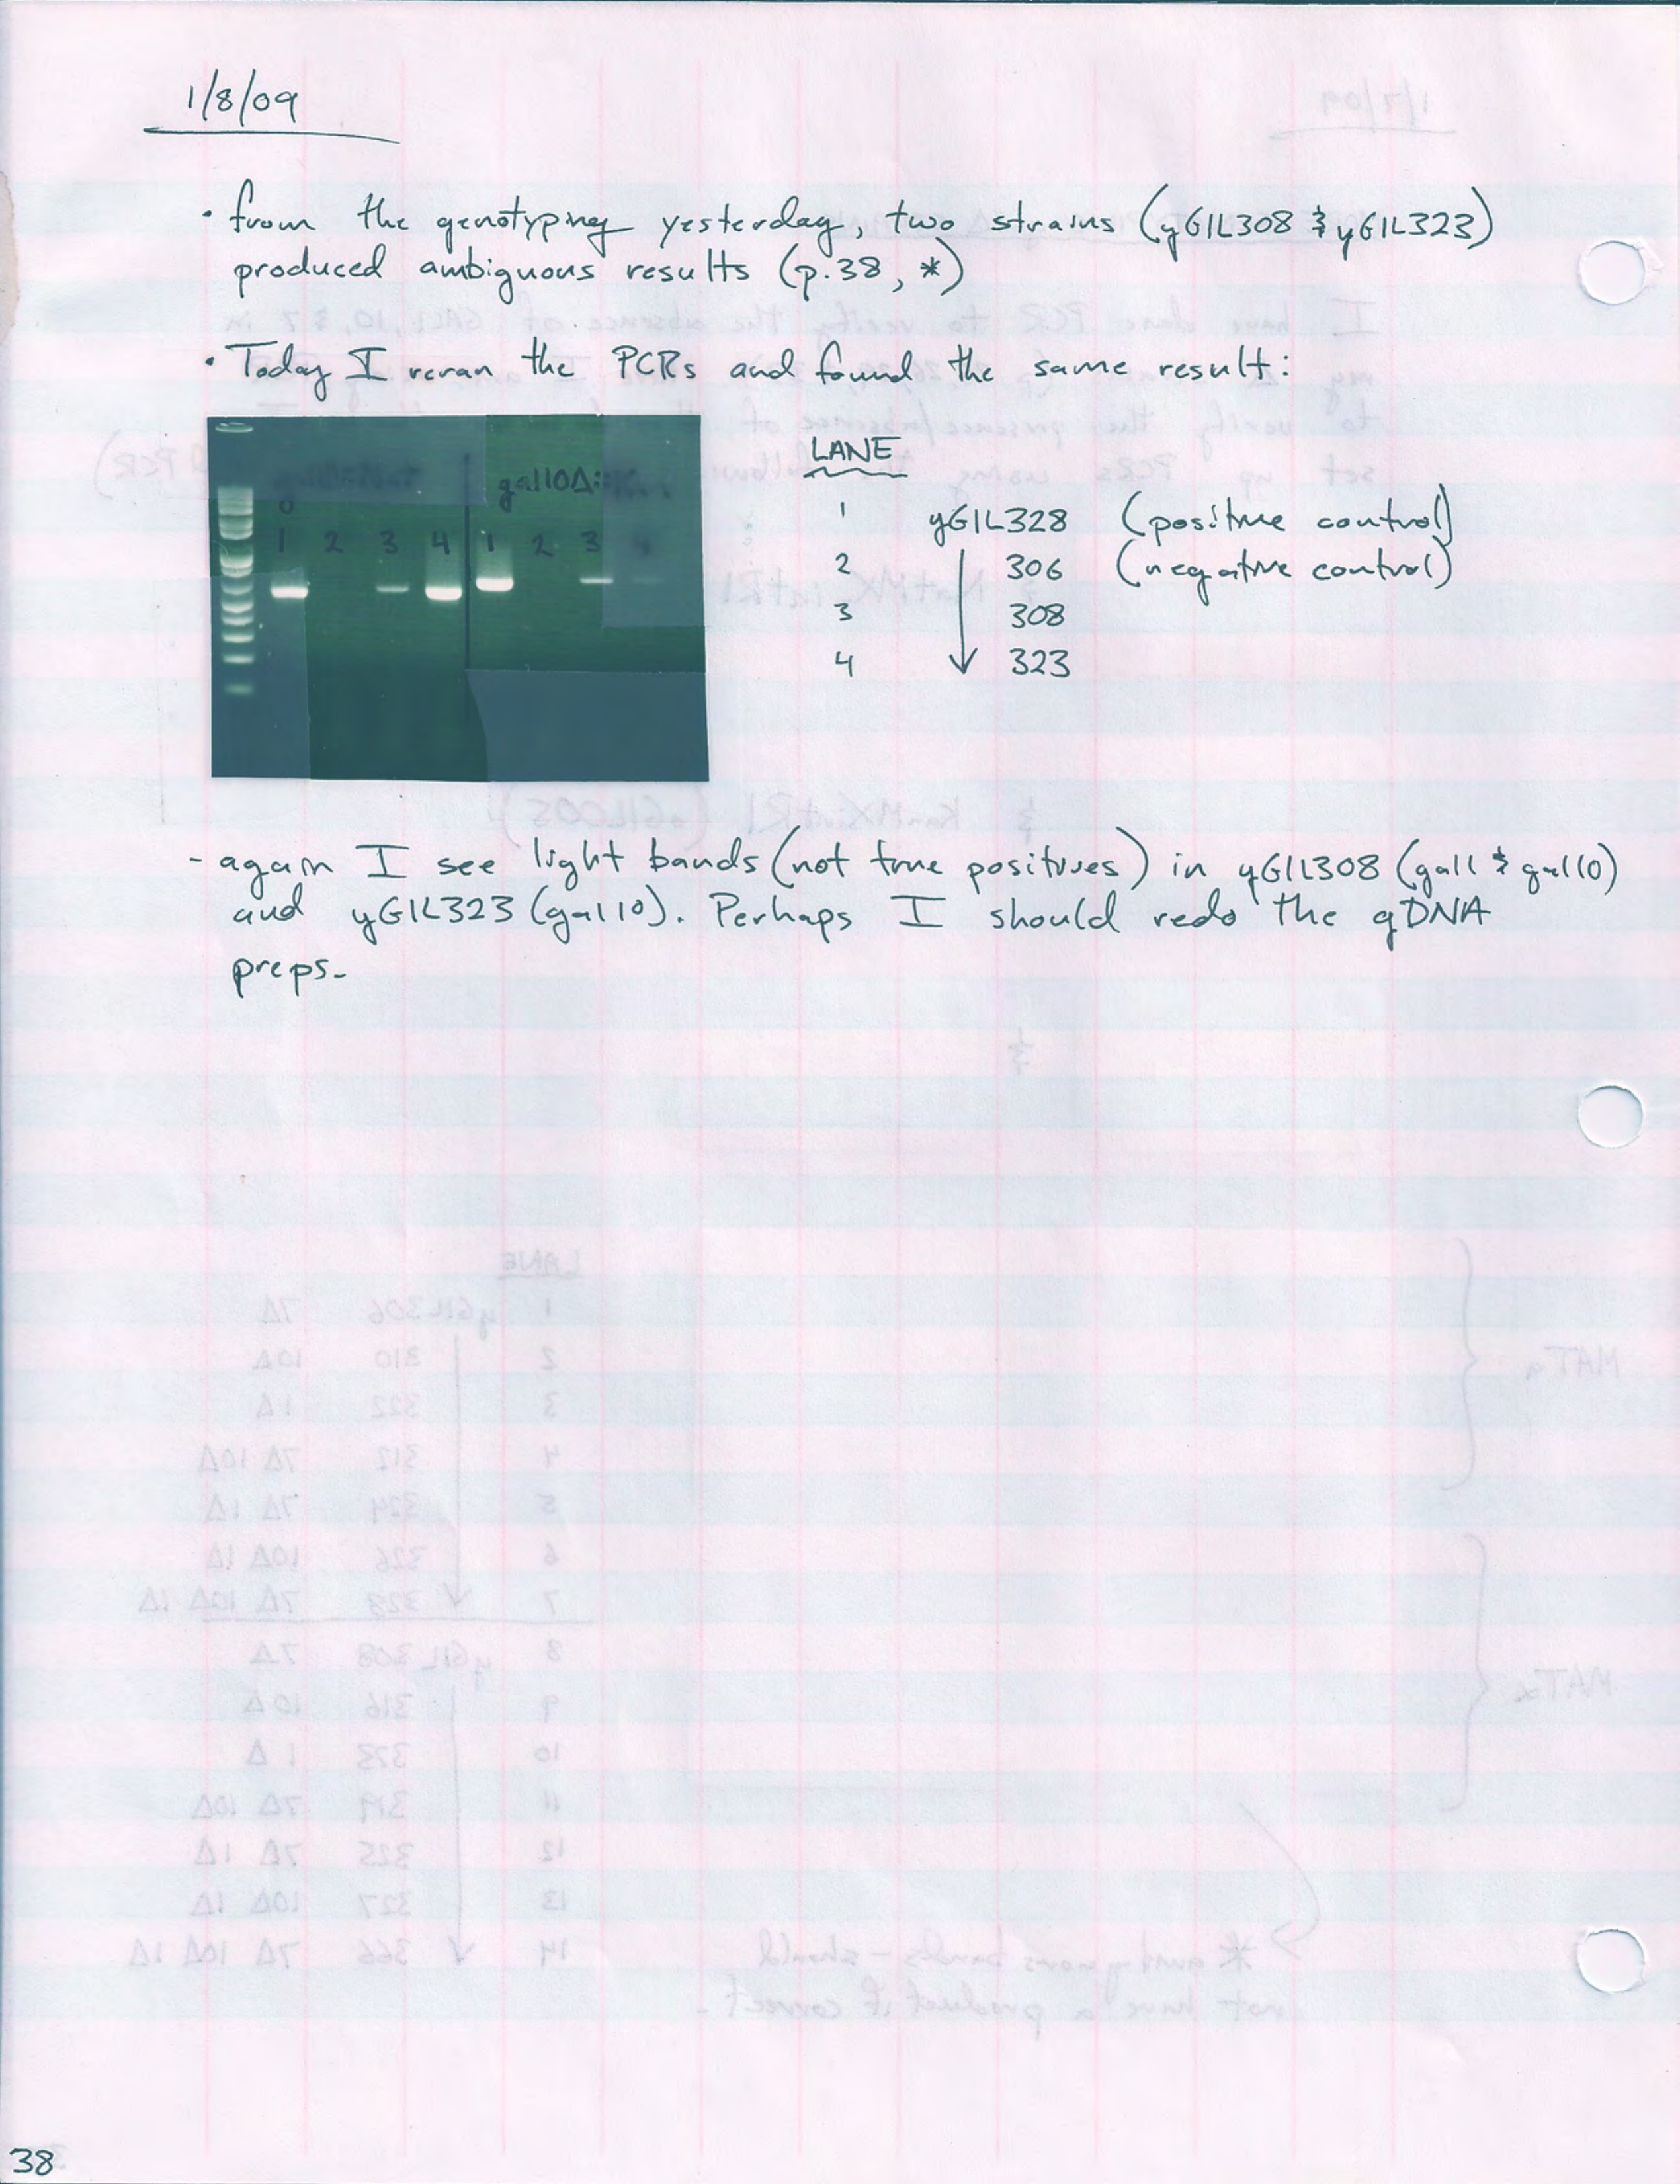 1/8/09
• from the genotyping yesterday, two strains (yGIL308 & yGIL323)
produced ambiguous results (p.38, *)
• Today I reran the PCRs and found the same result:
gal10Δ::
1 2 3 4 1 2 3 4
LANE
1 yGIL328 (positive control)
2 306 (negative control)
3 308
4 323
- again I see light bands (not true positives) in yGIL308 (gal1 & gal10)
and yGIL323 (gal10). Perhaps I should redo the gDNA
preps.
38